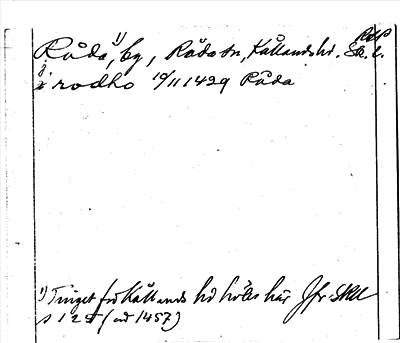 RäP
Råda,¹⁾ by, Råda sn, Kållands hd. Sk. l.
j rodho 19/11 1429 Råda
¹⁾ Tinget för Kållands hd hölls här Jfr
s 125 (1457)